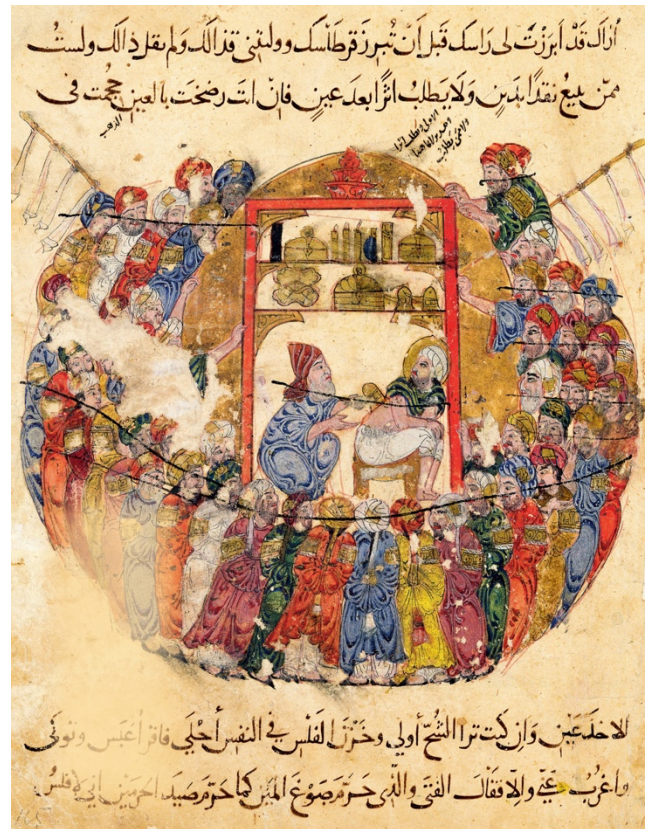 أراك قد أبرزت لي راسك قبل ان تبرز قرطاسك ووليتني قذالك ولم تقل ذالك ولست
ممن يبيع نقدا بدين ولا يطلب اثرا بعد عين فان انت رضخت بالعين حجمت في
الاخدعين وان كنت ترا الشح أولي وخزن الفلس في النفس أحلي فاقرا عبس وتولى
واغرب عني والا فقال الفتى والذي حرم صوغ المين كما حرم صيد الحرمين اني لافلس